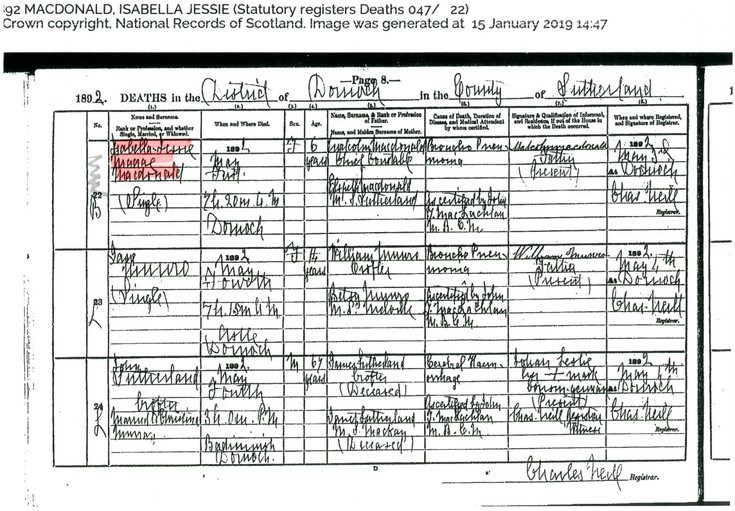 :92 MACDONALD, ISABELLA JESSIE (Statutory registers Deaths 047/ 22)
Crown copyright, National Records of Scotland. Image was generated at 15 January 2019 14:47
—Page 8.—
1892. DEATHS in the District of Dornoch in the County of Sutherland
(1.) (2.) (3.) (4.) (5.) (6.) (7.) (8.)
No.
Name and Surname.
Rank or Profession, and whether Single, Married, or Widowed.
When and Where Died.
Sex.
Age.
Name, Surname, & Rank or Profession of Father.
Name, and Maiden Surname of Mother.
Cause of Death, Duration of Disease, and Medical Attendant by whom certified.
Signature & Qualification of Informant, and Residence, if out of the House in which the Death occurred.
When and where Registered, and Signature of Registrar.
22
Isabella Jessie
Macdonald
(Single)
1892
May
7h. 20m. A.M.
Dornoch
F
6
years
Malcolm Macdonald
Chief Constable
Elspeth Macdonald
M.S. Sutherland
Broncho Pneu-
monia
As certified by John
J. MacLachlan
Malcolm Macdonald
Father
(Present)
1892
May
At Dornoch
Chas. Neill
Registrar.
23
Munro
(Single)
1892
May
Fourth
7h. 15m. A.M.
Dornoch
F
14
years
William Munro
Crofter
Betsy Munro
Broncho Pneu-
monia
As certified by John
J. MacLachlan
William Munro
Father
(Present)
1892
May 4th
At Dornoch
Chas. Neill
Registrar.
24
John
Sutherland
Crofter
Married to Christina
Murray
1892
May
Fourth
3h. 0m. P.M.
Badninish
Dornoch.
M
67
years
James Sutherland
Crofter
(Deceased)
Janet Sutherland
M.S. Mackay
(Deceased)
Cerebral Haem-
orrhage
As certified by John
J. MacLachlan
Johan Leslie
her + mark
(Present)
Chas. Neill Registrar
Witness
1892
May
At Dornoch
Chas. Neill
Registrar.
D
Charles Neill Registrar.